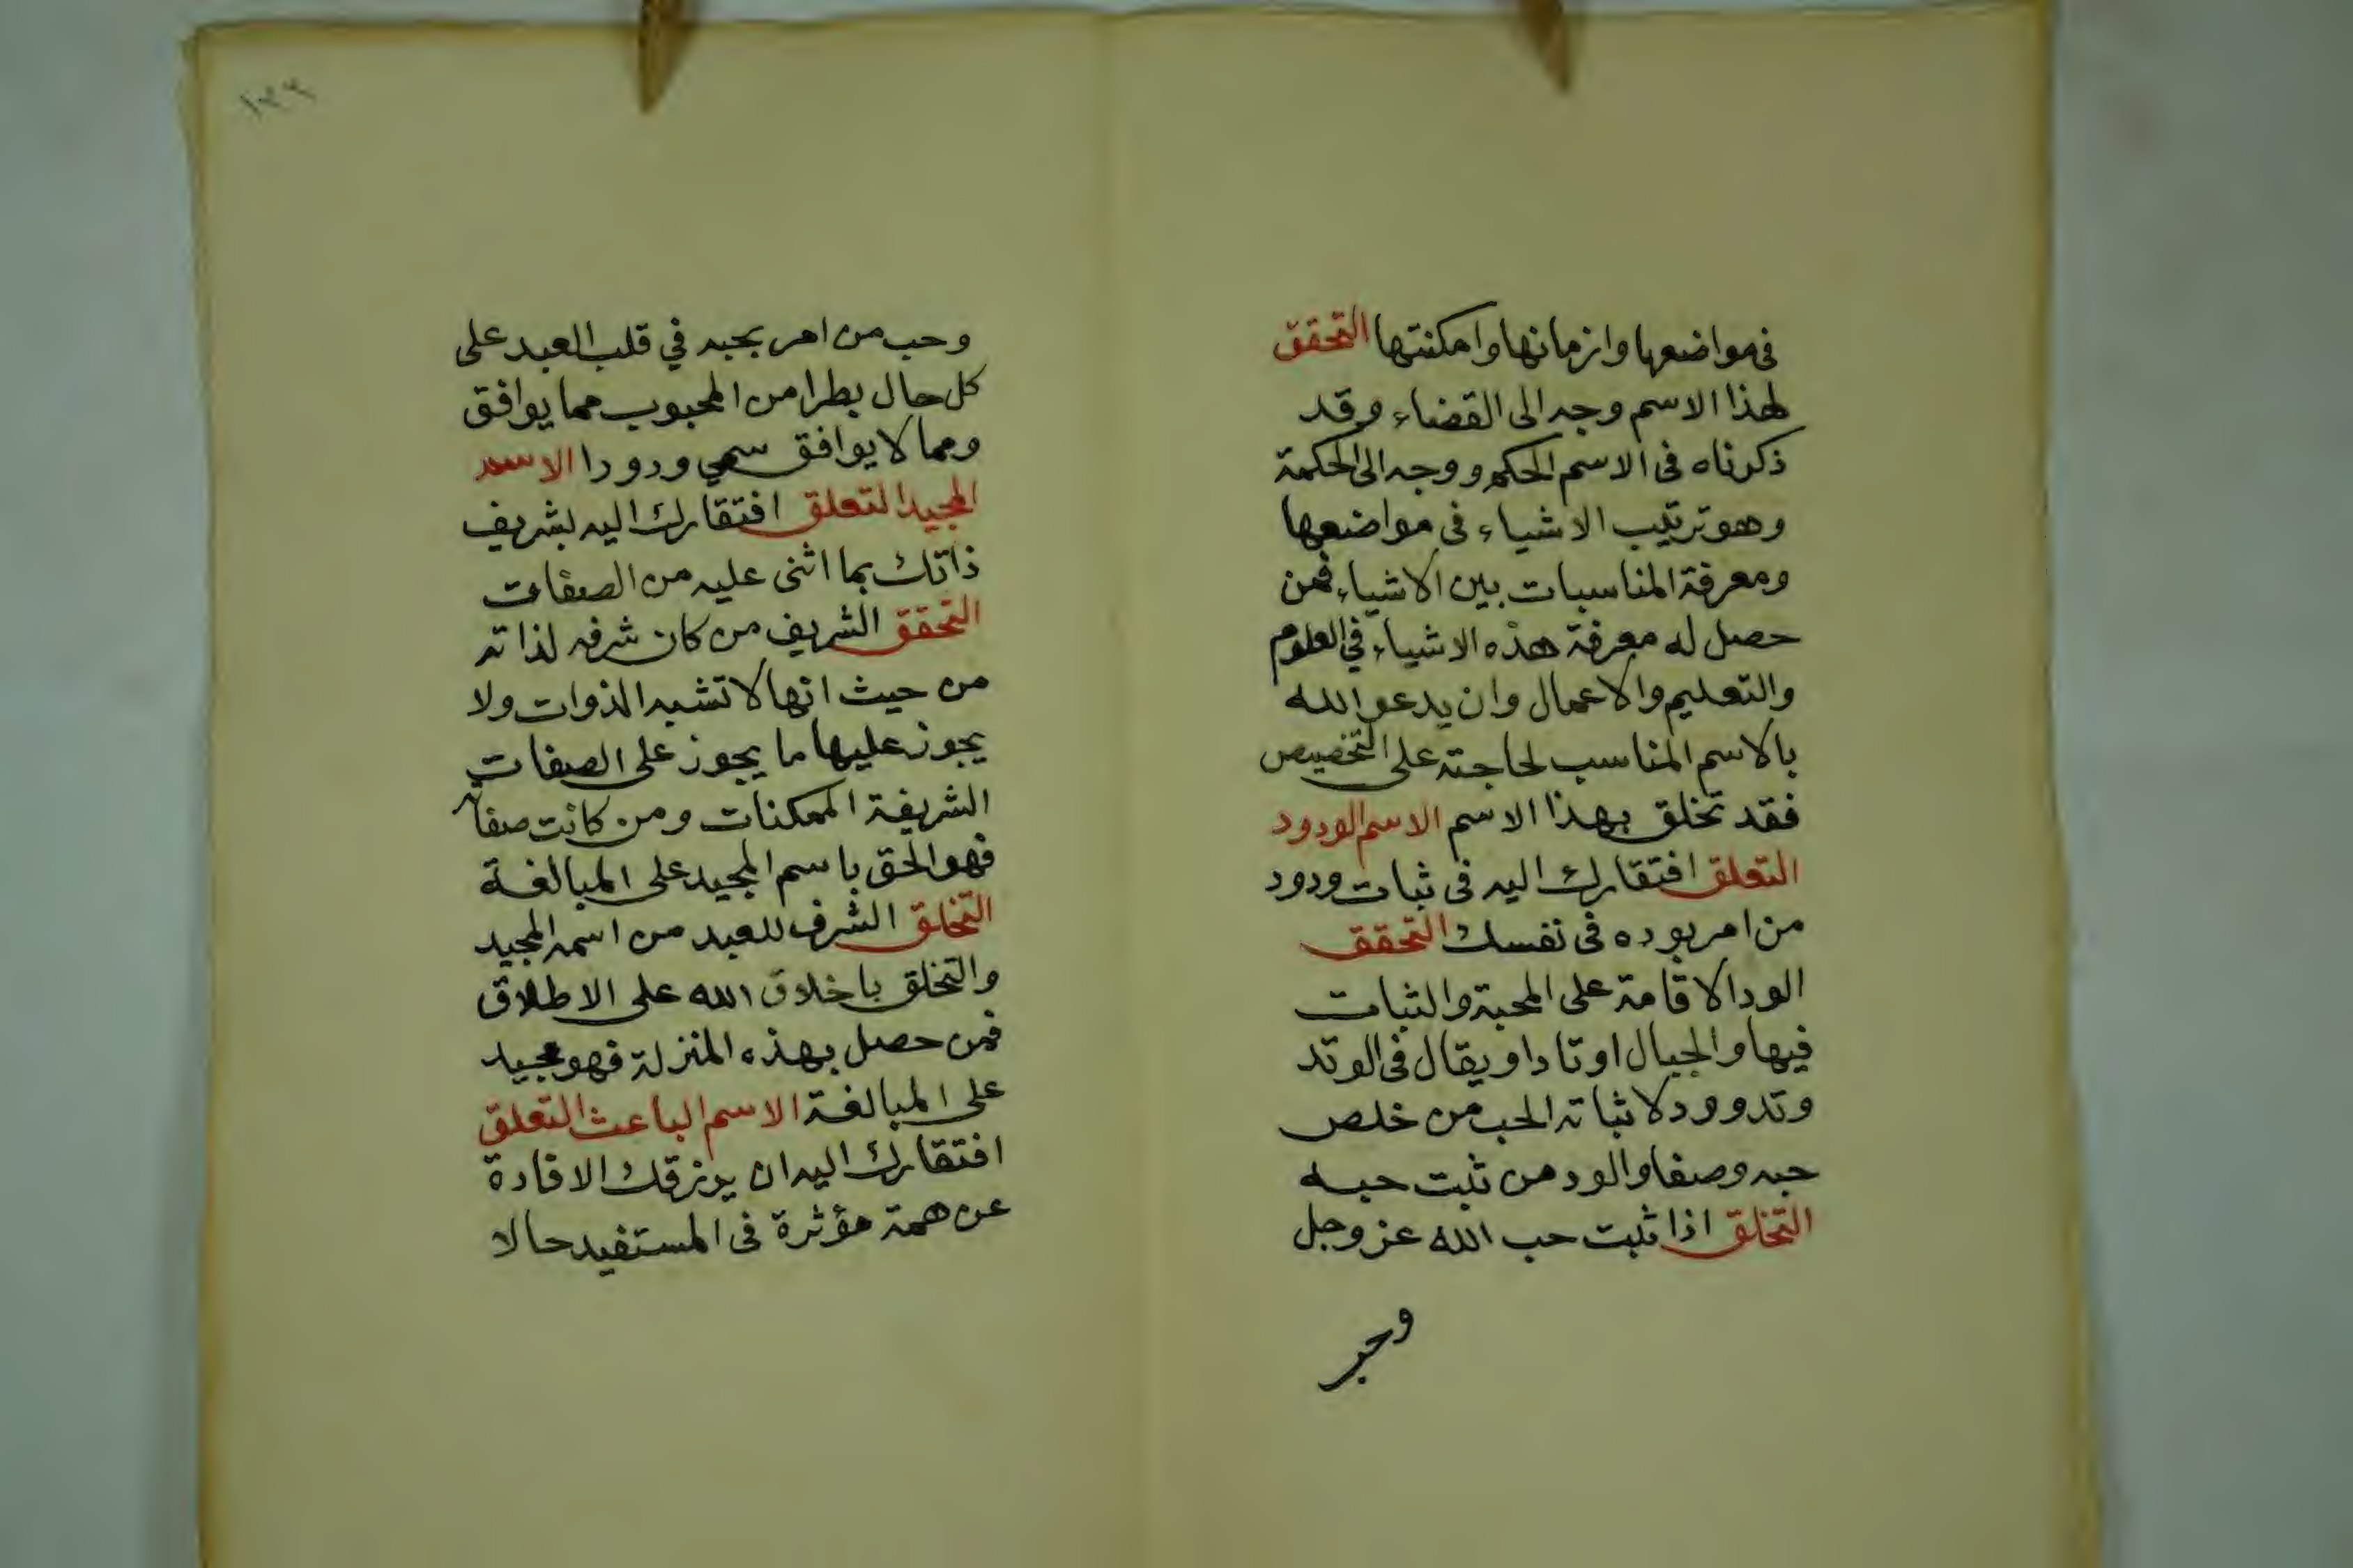 في مواضعها وازمانها وامكنتها التحقق
لهذا الاسم وجه الى القضاء وقد
ذكرناه فى الاسم الحكم ووجه الى الحكمة
وهو ترتيب الاشياء فى مواضعها
ومعرفة المناسبات بين الاشياء فمن
حصل له معرفة هذه الاشياء في العلوم
والتعليم والاعمال وان يدعو الله
بالاسم المناسب لحاجته على التخصيص
فقد تخلق بهذا الاسم الاسم الودود
التعلق افتقارك اليه فى ثبات ودود
من امر بوده فى نفسك التحقق
الود الاقامة على المحبة والثبات
فيها والجبال اوتادا ويقال فى الوتد
وتد وود لاثباته الحب من خلص
حبه وصفا والود من ثبت حبه
التخلق اذا ثبت حب الله عز وجل
وحب
١٣٣
وحب من امر بحبه في قلب العبد على
كل حال يطرا من المحبوب مما يوافق
ومما لا يوافق سمي ودودا الاسم
المجيد التعلق افتقارك اليه لشريف
ذاتك بما اثنى عليه من الصفات
التحقق الشريف من كان شرفه لذاته
من حيث انها لا تشبه الذوات ولا
يجوز عليها ما يجوز على الصفات
الشريفة الممكنات ومن كانت صفاته
فهو الحق باسم المجيد على المبالغة
التخلق الشرف للعبد من اسمه المجيد
والتخلق باخلاق الله على الاطلاق
فمن حصل بهذه المنزلة فهو مجيد
على المبالغة الاسم الباعث التعلق
افتقارك اليه ان يرزقك الافادة
عن همة مؤثرة فى المستفيد حالا